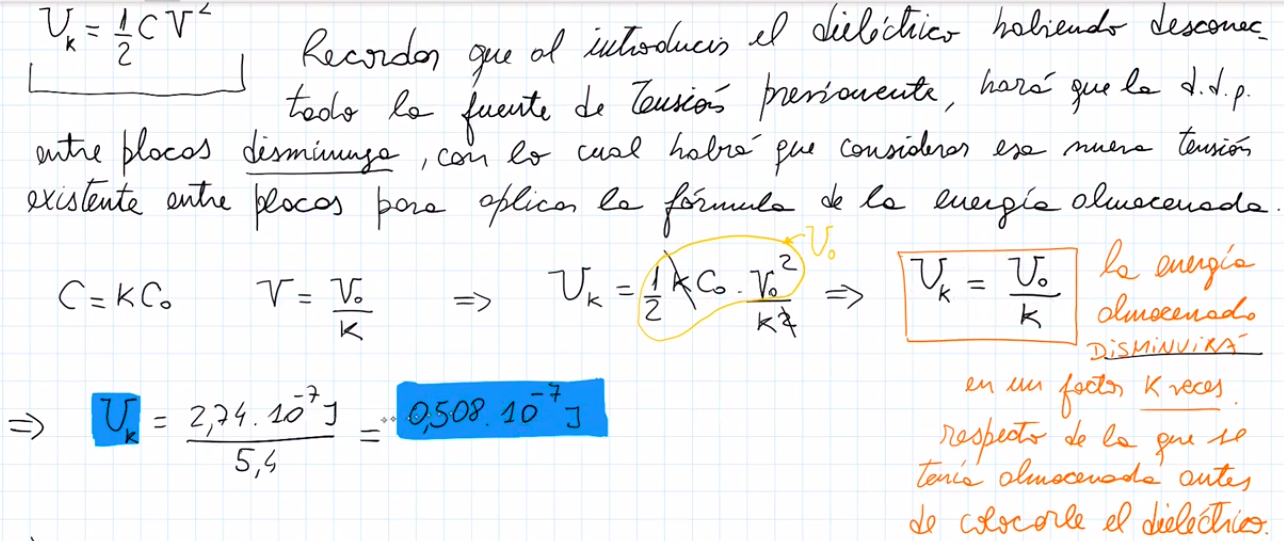 U_k = 1/2 C V²
Recordar que al introducir el dieléctrico habiendo desconec-
tado la fuente de Tensión previamente, hará que la d.d.p.
entre placas disminuya, con lo cual habrá que considerar esa nueva tensión
existente entre placas para aplicar la fórmula de la energía almacenada.
U₀
C = K C₀ V = V₀/K ⇒ U_k = 1/2 K C₀ · V₀²/K² ⇒ U_k = U₀/K
la energía
almacenada
DISMINUIRÁ
en un factor K veces
respecto de la que se
tenía almacenada antes
de colocarle el dieléctrico.
⇒ U_k = 2,74 · 10⁻⁷ J / 5,4 = 0,508 · 10⁻⁷ J